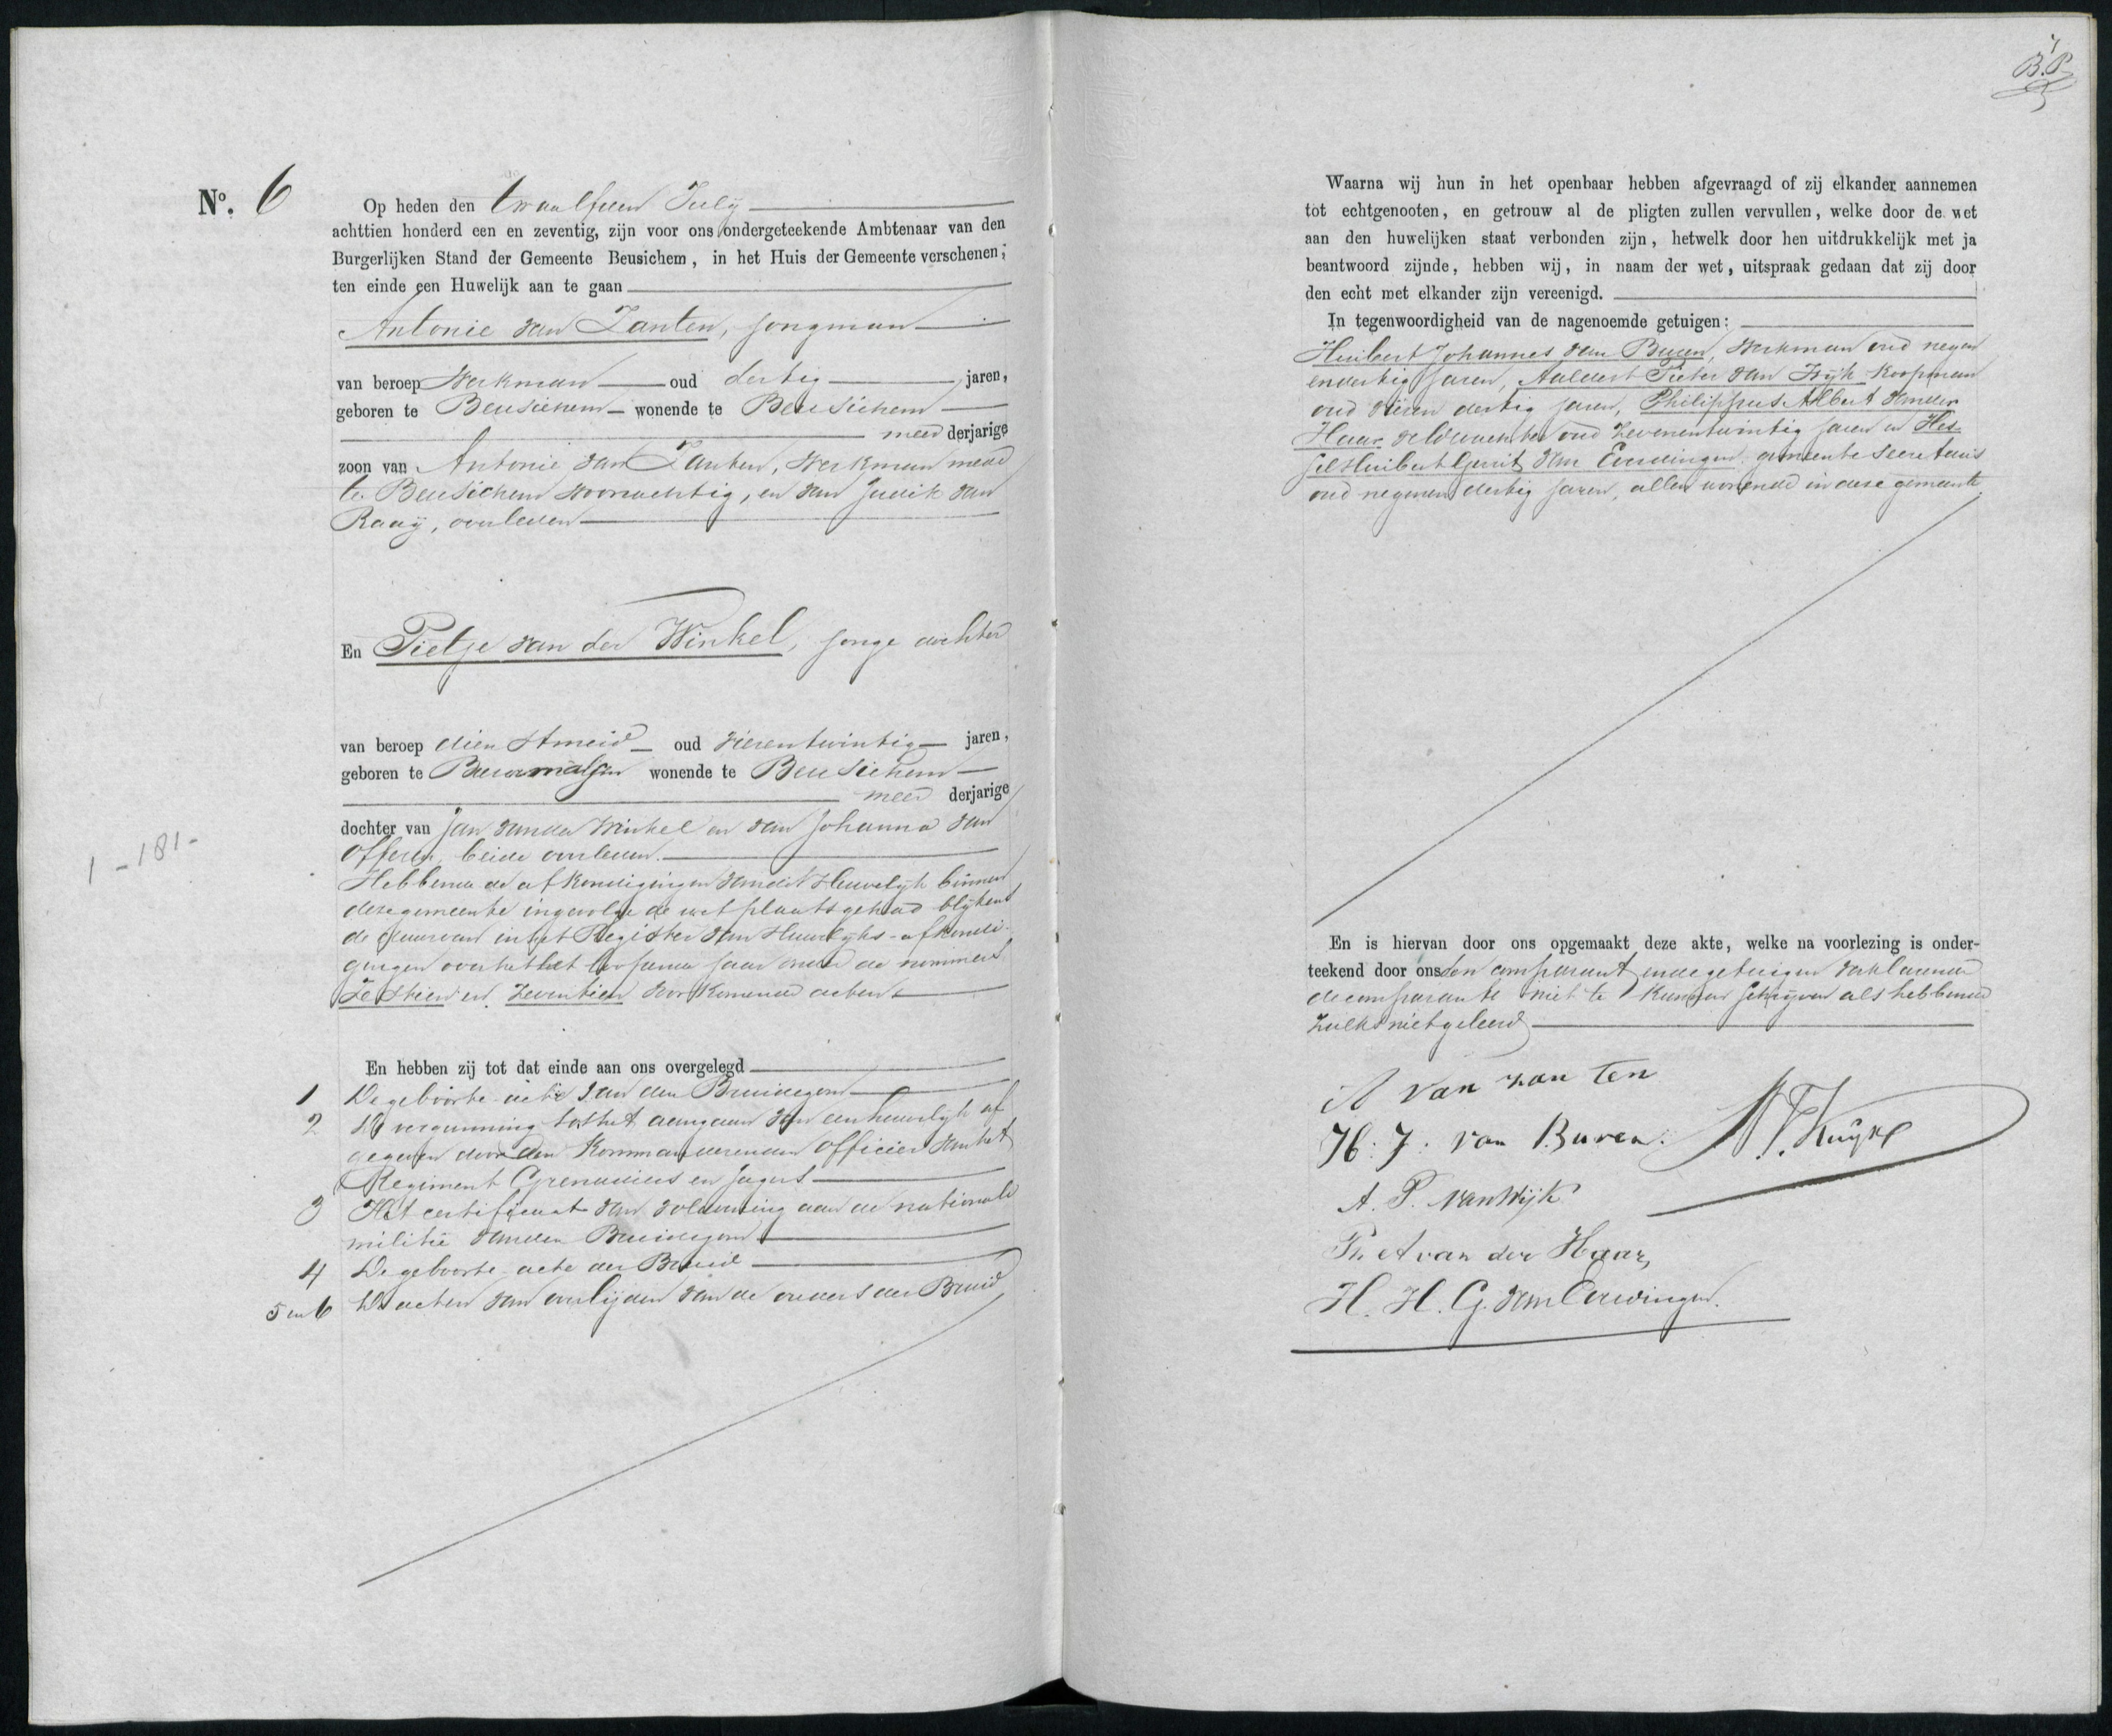 B.P.
No. 6
Op heden den twaalfden Julij
achttien honderd een en zeventig, zijn voor ons ondergeteekende Ambtenaar van den
Burgerlijken Stand der Gemeente Beusichem, in het Huis der Gemeente verschenen;
ten einde een Huwelijk aan te gaan
Antonie van Zanten, jongman
van beroep Werkman oud dertig jaren,
geboren te Beusichem wonende te Beusichem
meerderjarige
zoon van Antonie van Zanten, Werkman mede
te Beusichem woonachtig, en van Judik van
Raaij, overleden
En Pietje van der Winkel, jonge dochter
van beroep dienstmeid oud vierentwintig jaren,
geboren te Buurmalsen wonende te Beusichem
meerderjarige
dochter van Jan van der Winkel en van Johanna van
Offeren, beide overleden.
Hebbende de afkondigingen van dit Huwelijk binnen
deze gemeente ingevolge de wet plaats gehad blijkens
de daarvan in het Register van Huwelijks-afkondi-
gingen over het het loopende jaar onder de nummers
Zestien en Zeventien voorkomende acten
1 - 181 -
En hebben zij tot dat einde aan ons overgelegd
1 De geboorte-acte van den Bruidegom
2 De vergunning tot het aangaan van een huwelijk af
gegeven door den Kommanderenden Officier van het
Regiment Grenadiers en Jagers
3 Het certificaat van voldoening aan de nationale
militie van den Bruidegom
4 De geboorte-acte der Bruid
5 en 6 De acten van overlijden van de ouders der Bruid
Waarna wij hun in het openbaar hebben afgevraagd of zij elkander aannemen
tot echtgenooten, en getrouw al de pligten zullen vervullen, welke door de wet
aan den huwelijken staat verbonden zijn, hetwelk door hen uitdrukkelijk met ja
beantwoord zijnde, hebben wij, in naam der wet, uitspraak gedaan dat zij door
den echt met elkander zijn vereenigd.
In tegenwoordigheid van de nagenoemde getuigen:
Huibert Johannes van Buren, Werkman oud negen
endertig jaren, Aaldert Pieter van Wijk Koopman
oud vieren dertig jaren, Philippus Albert van der
Haar veldwachter oud zevenentwintig jaren en Hes-
sel Huibert Gerrit van Everdingen, gemeente Secretaris
oud negenen dertig jaren, allen wonende in deze gemeente
En is hiervan door ons opgemaakt deze akte, welke na voorlezing is onder-
teekend door ons den comparant en de getuigen verklarende
de comparante niet te kunnen schrijven als hebbende
zulks niet geleerd
A van zan ten
H. J. van Buren.
Kuijk
A. P. van Wijk
Ph. A van der Haar,
H. H. G. van Everdingen.